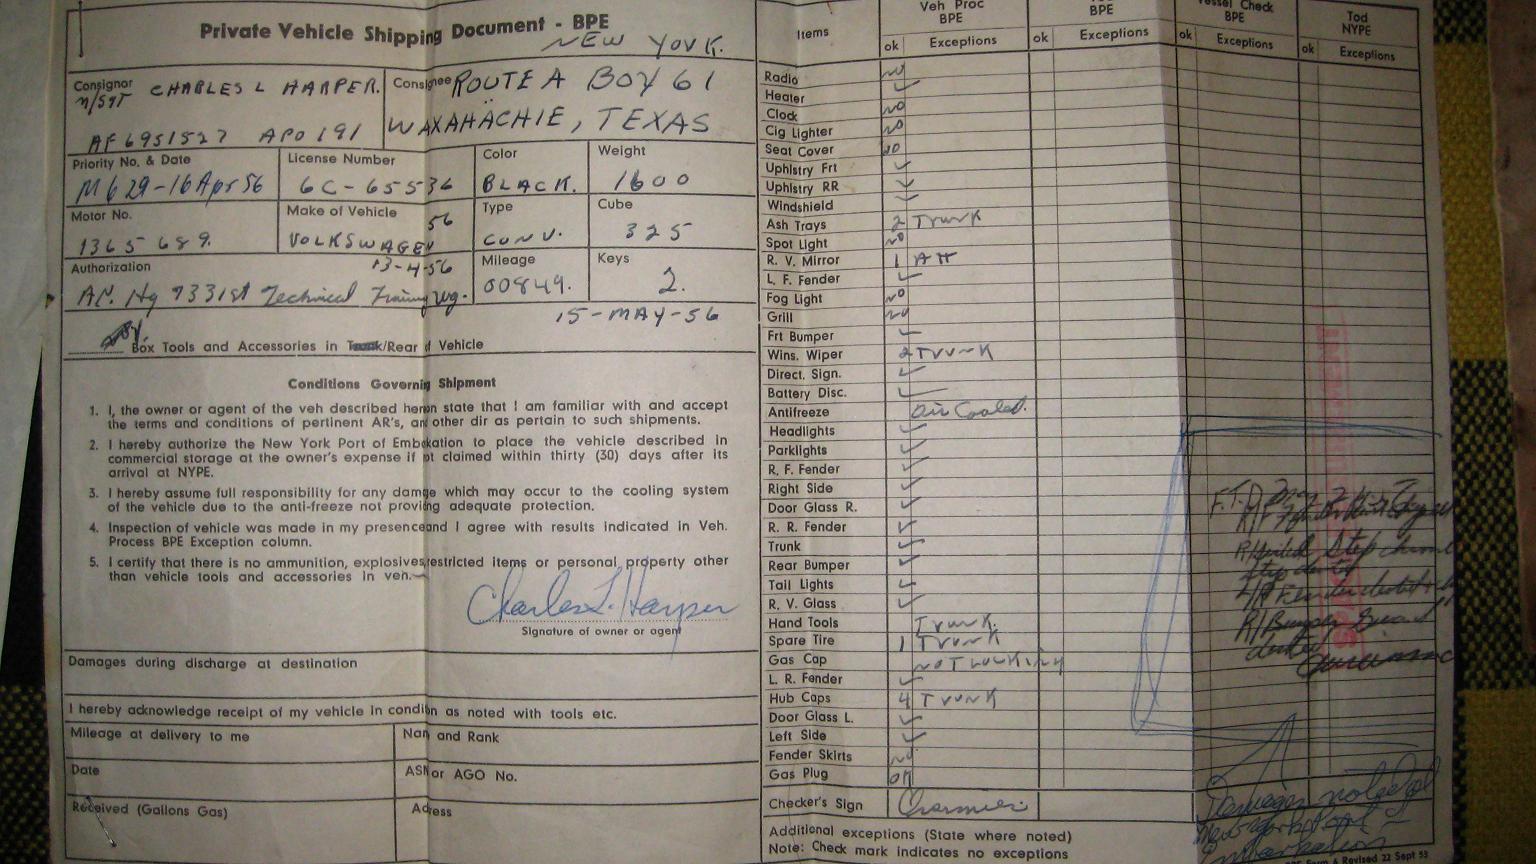 Private Vehicle Shipping Document - BPE
NEW YORK.
Consignor
M/SGT CHARLES L HARPER.
AF 6951527 APO 191
Consignee ROUTE A BOX 61
WAXAHACHIE, TEXAS
Priority No. & Date
M629-16 Apr 56
License Number
6C-65536
Color
BLACK.
Weight
1600
Motor No.
1365 689.
Make of Vehicle
56
VOLKSWAGEN
Type
CONV.
Cube
325
Authorization
13-4-56
Hq 7331st Technical Training Wg.
Mileage
00849.
Keys
2.
15-MAY-56
Box Tools and Accessories in Trunk/Rear of Vehicle
Conditions Governing Shipment
1. I, the owner or agent of the veh described hereon state that I am familiar with and accept
the terms and conditions of pertinent AR's, and other dir as pertain to such shipments.
2. I hereby authorize the New York Port of Embarkation to place the vehicle described in
commercial storage at the owner's expense if not claimed within thirty (30) days after its
arrival at NYPE.
3. I hereby assume full responsibility for any damage which may occur to the cooling system
of the vehicle due to the anti-freeze not providing adequate protection.
4. Inspection of vehicle was made in my presence and I agree with results indicated in Veh.
Process BPE Exception column.
5. I certify that there is no ammunition, explosives, restricted items or personal property other
than vehicle tools and accessories in veh.
Charles L. Harper
Signature of owner or agent
Damages during discharge at destination
I hereby acknowledge receipt of my vehicle in condition as noted with tools etc.
Mileage at delivery to me
Name and Rank
Date
ASN or AGO No.
Received (Gallons Gas)
Address
Items
Veh Proc
BPE
ok Exceptions
BPE
ok Exceptions
Vessel Check
BPE
ok Exceptions
Tod
NYPE
ok Exceptions
Radio no
Heater ✓
Clock no
Cig Lighter no
Seat Cover no
Uphlstry Frt ✓
Uphlstry RR ✓
Windshield ✓
Ash Trays 2 Trunk
Spot Light no
R. V. Mirror 1
L. F. Fender ✓
Fog Light no
Grill no
Frt Bumper ✓
Wins. Wiper 2 Trunk
Direct. Sign. ✓
Battery Disc. ✓
Antifreeze Air Cooled.
Headlights ✓
Parklights ✓
R. F. Fender ✓
Right Side ✓
Door Glass R. ✓
R. R. Fender ✓
Trunk ✓
Rear Bumper ✓
Tail Lights ✓
R. V. Glass ✓
Hand Tools Trunk.
Spare Tire 1 Trunk
Gas Cap not Locking
L. R. Fender ✓
Hub Caps 4 Trunk
Door Glass L. ✓
Left Side ✓
Fender Skirts no
Gas Plug OK
Checker's Sign
Additional exceptions (State where noted)
Note: Check mark indicates no exceptions
Damages noted
Revised 22 Sept 53